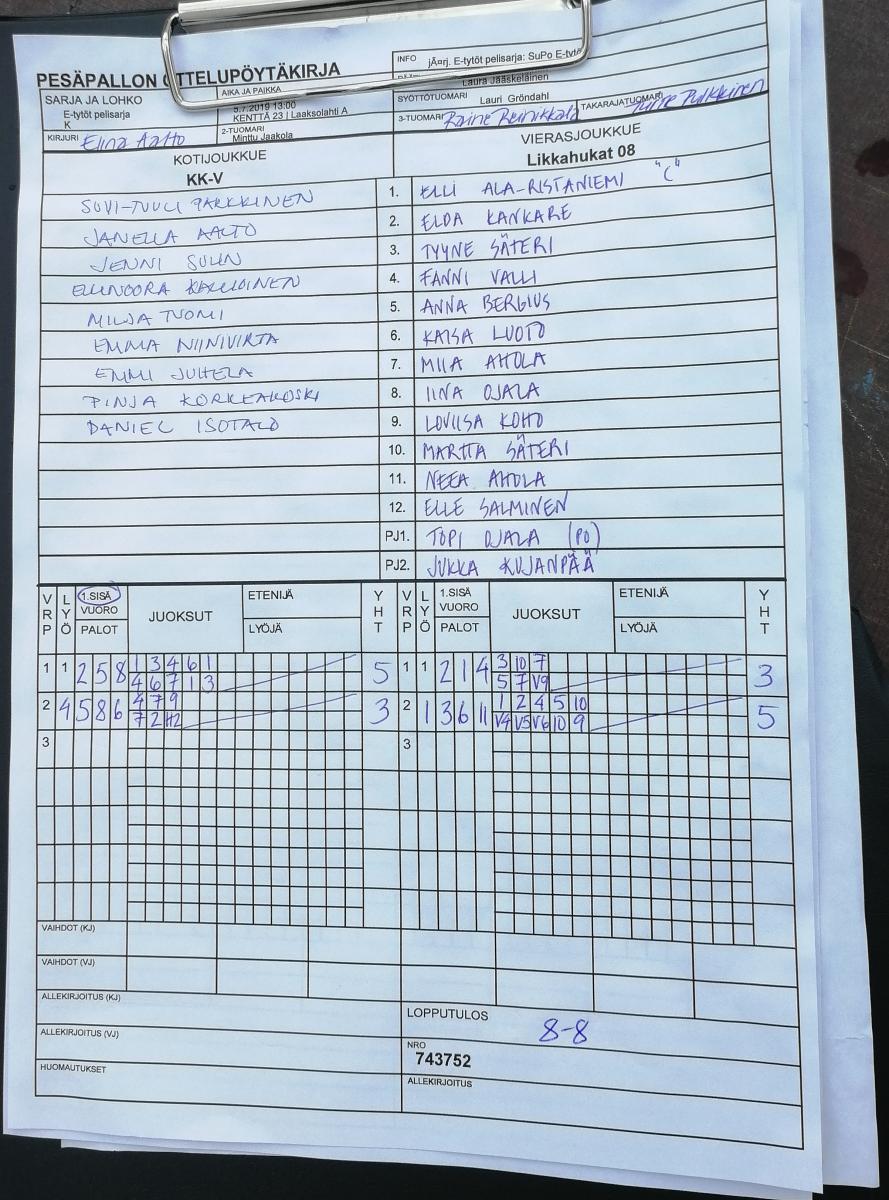 PESÄPALLON OTTELUPÖYTÄKIRJA
INFO jÄ¤rj. E-tytöt pelisarja: SuPo E-tytö
SARJA JA LOHKO
E-tytöt pelisarja
K
AIKA JA PAIKKA
5.7.2019 13:00
KENTTÄ 23 | Laaksolahti A
Laura Jääskeläinen
SYÖTTÖTUOMARI Lauri Gröndahl
KIRJURI Elina Aalto
2-TUOMARI
Minttu Jaakola
3-TUOMARI Raine Reinikkala
TAKARAJATUOMARI Pulkkinen
KOTIJOUKKUE
KK-V
VIERASJOUKKUE
Likkahukat 08
SUVI-TUULI PARKKINEN 1. ELLI ALA-RISTANIEMI "C"
JANELLA AALTO 2. ELDA KANKARE
JENNI SULIN 3. TYYNE SÄTERI
ELLINOORA KALLIOINEN 4. FANNI VALLI
MILJA TUOMI 5. ANNA BERGIUS
EMMA NIINIVIRTA 6. KAISA LUOTO
EMMI JUHELA 7. MIIA AHOLA
PINJA KORKEAKOSKI 8. IINA OJALA
DANIEL ISOTALO 9. LOVIISA KOHO
10. MARTTA SÄTERI
11. NEEA AHOLA
12. ELLE SALMINEN
PJ1. TOPI OJALA (PO)
PJ2. JUKKA KUJANPÄÄ
VRP LYÖ 1.SISÄ VUORO PALOT JUOKSUT ETENIJÄ LYÖJÄ YHT VRP LYÖ 1.SISÄ VUORO PALOT JUOKSUT ETENIJÄ LYÖJÄ YHT
1 1 2 5 8 1 3 4 6 1 5 1 1 2 1 4 3 10 7 3
4 6 7 1 3 5 7 V9
2 4 5 8 6 4 7 9 3 2 1 3 6 11 1 2 4 5 10 5
7 2 H2 V4 V5 V6 10 9
3 3
VAIHDOT (KJ)
VAIHDOT (VJ)
ALLEKIRJOITUS (KJ)
ALLEKIRJOITUS (VJ)
HUOMAUTUKSET
LOPPUTULOS 8-8
NRO
743752
ALLEKIRJOITUS